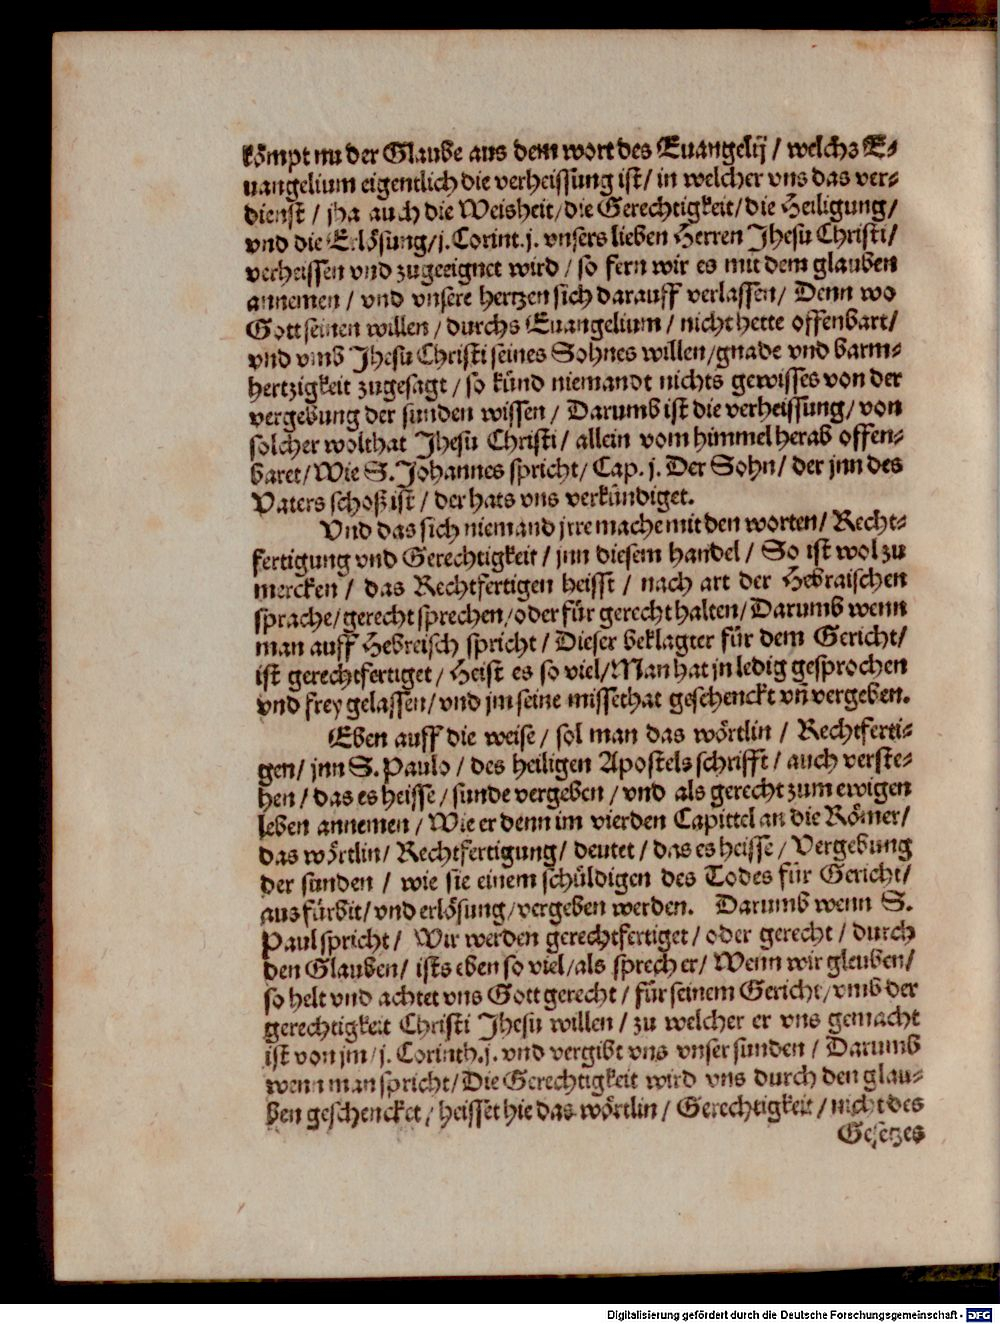 kömpt nu der Glaube aus dem wort des Euangelij / welchs E-
uangelium eigentlich die verheissung ist / in welcher vns das ver-
dienst / jha auch die Weisheit / die Gerechtigkeit / die Heiligung /
vnd die Erlösung / j. Corint. j. vnsers lieben Herren Jhesu Christi /
verheissen vnd zugeeignet wird / so fern wir es mit dem glauben
annemen / vnd vnsere hertzen sich darauff verlassen / Denn wo
Gott seinen willen / durchs Euangelium / nicht hette offenbart /
vnd vmb Jhesu Christi seines Sohnes willen / gnade vnd barm-
hertzigkeit zugesagt / so künd niemandt nichts gewisses von der
vergebung der sunden wissen / Darumb ist die verheissung / von
solcher wolthat Jhesu Christi / allein vom himmel herab offen-
baret / Wie S. Johannes spricht / Cap. j. Der Sohn / der jnn des
Vaters schoß ist / der hats vns verkündiget.
Vnd das sich niemand jrre mache mit den worten / Recht-
fertigung vnd Gerechtigkeit / jnn diesem handel / So ist wol zu
mercken / das Rechtfertigen heisst / nach art der Hebraischen
sprache / gerecht sprechen / oder für gerecht halten / Darumb wenn
man auff Hebreisch spricht / Dieser beklagter für dem Gericht /
ist gerechtfertiget / Heist es so viel / Man hat jn ledig gesprochen
vnd frey gelassen / vnd jm seine missethat geschenckt vn̄ vergeben.
Eben auff die weise / sol man das wörtlin / Rechtferti-
gen / jnn S. Paulo / des heiligen Apostels schrifft / auch verste-
hen / das es heisse / sunde vergeben / vnd als gerecht zum ewigen
leben annemen / Wie er denn im vierden Capittel an die Römer /
das wörtlin / Rechtfertigung / deutet / das es heisse / Vergebung
der sunden / wie sie einem schüldigen des Todes für Gericht /
aus fürbit / vnd erlösung / vergeben werden. Darumb wenn S.
Paul spricht / Wir werden gerechtfertiget / oder gerecht / durch
den Glauben / ists eben so viel / als sprech er / Wenn wir gleuben /
so helt vnd achtet vns Gott gerecht / für seinem Gericht / vmb der
gerechtigkeit Christi Jhesu willen / zu welcher er vns gemacht
ist von jm / j. Corinth. j. vnd vergibt vns vnser sunden / Darumb
wenn man spricht / Die Gerechtigkeit wird vns durch den glau-
ben geschencket / heisset hie das wörtlin / Gerechtigkeit / nicht des
Gesetzes
Digitalisierung gefördert durch die Deutsche Forschungsgemeinschaft - DFG